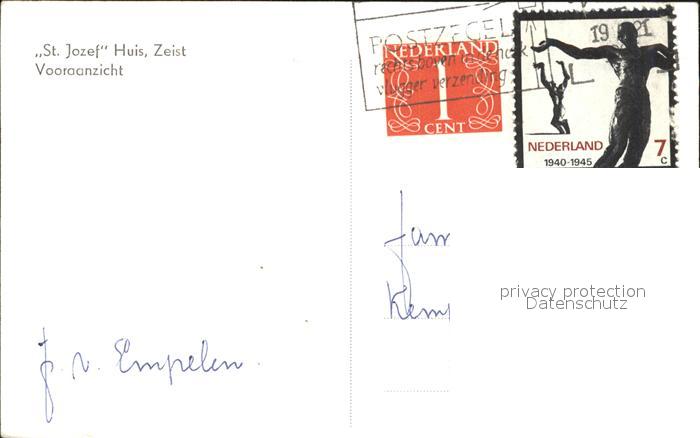 „St. Jozef" Huis, Zeist
Vooraanzicht
POSTZEGEL
rechtsboven
vlugger verzending
NEDERLAND
1
CENT
19
NEDERLAND
7
c
1940-1945
Jan
Kemp
privacy protection
Datenschutz
J. v. Empelen